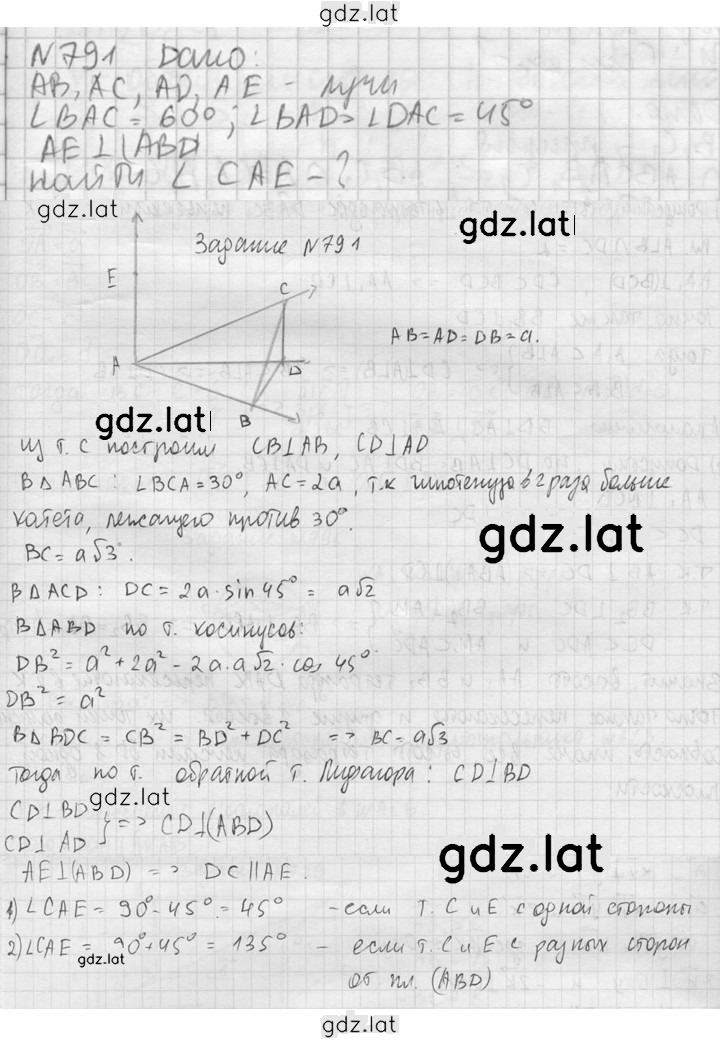 gdz.lat
N791 Дано:
AB, AC, AD, AE - лучи
∠BAC = 60°; ∠BAD = ∠DAC = 45°
AE⊥(ABD
Найти ∠ CAE - ?
gdz.lat
gdz.lat
Задание N791
E
C
A
D
B
AB = AD = DB = a.
gdz.lat
Из т. C построим CB⊥AB, CD⊥AD
В △ ABC: ∠BCA = 30°, AC = 2a, т.к гипотенуза в 2 раза больше
катета, лежащего против 30°.
gdz.lat
BC = a√3.
В △ ACD: DC = 2a · sin 45° = a√2
В △ABD по т. косинусов:
DB² = a² + 2a² - 2a · a√2 · cos 45°
DB² = a²
В △ BDC = CB² = BD² + DC² => BC = a√3
Тогда по т. обратной т. Пифагора: CD⊥BD
gdz.lat
CD⊥BD
CD⊥ AD } => CD⊥(ABD)
gdz.lat
AE⊥(ABD) => DC||AE.
1) ∠CAE = 90° - 45° = 45° - если т. C и E с одной стороны
2) ∠CAE = 90° + 45° = 135° - если т. C и E с разных сторон
gdz.lat
от пл. (ABD)
gdz.lat